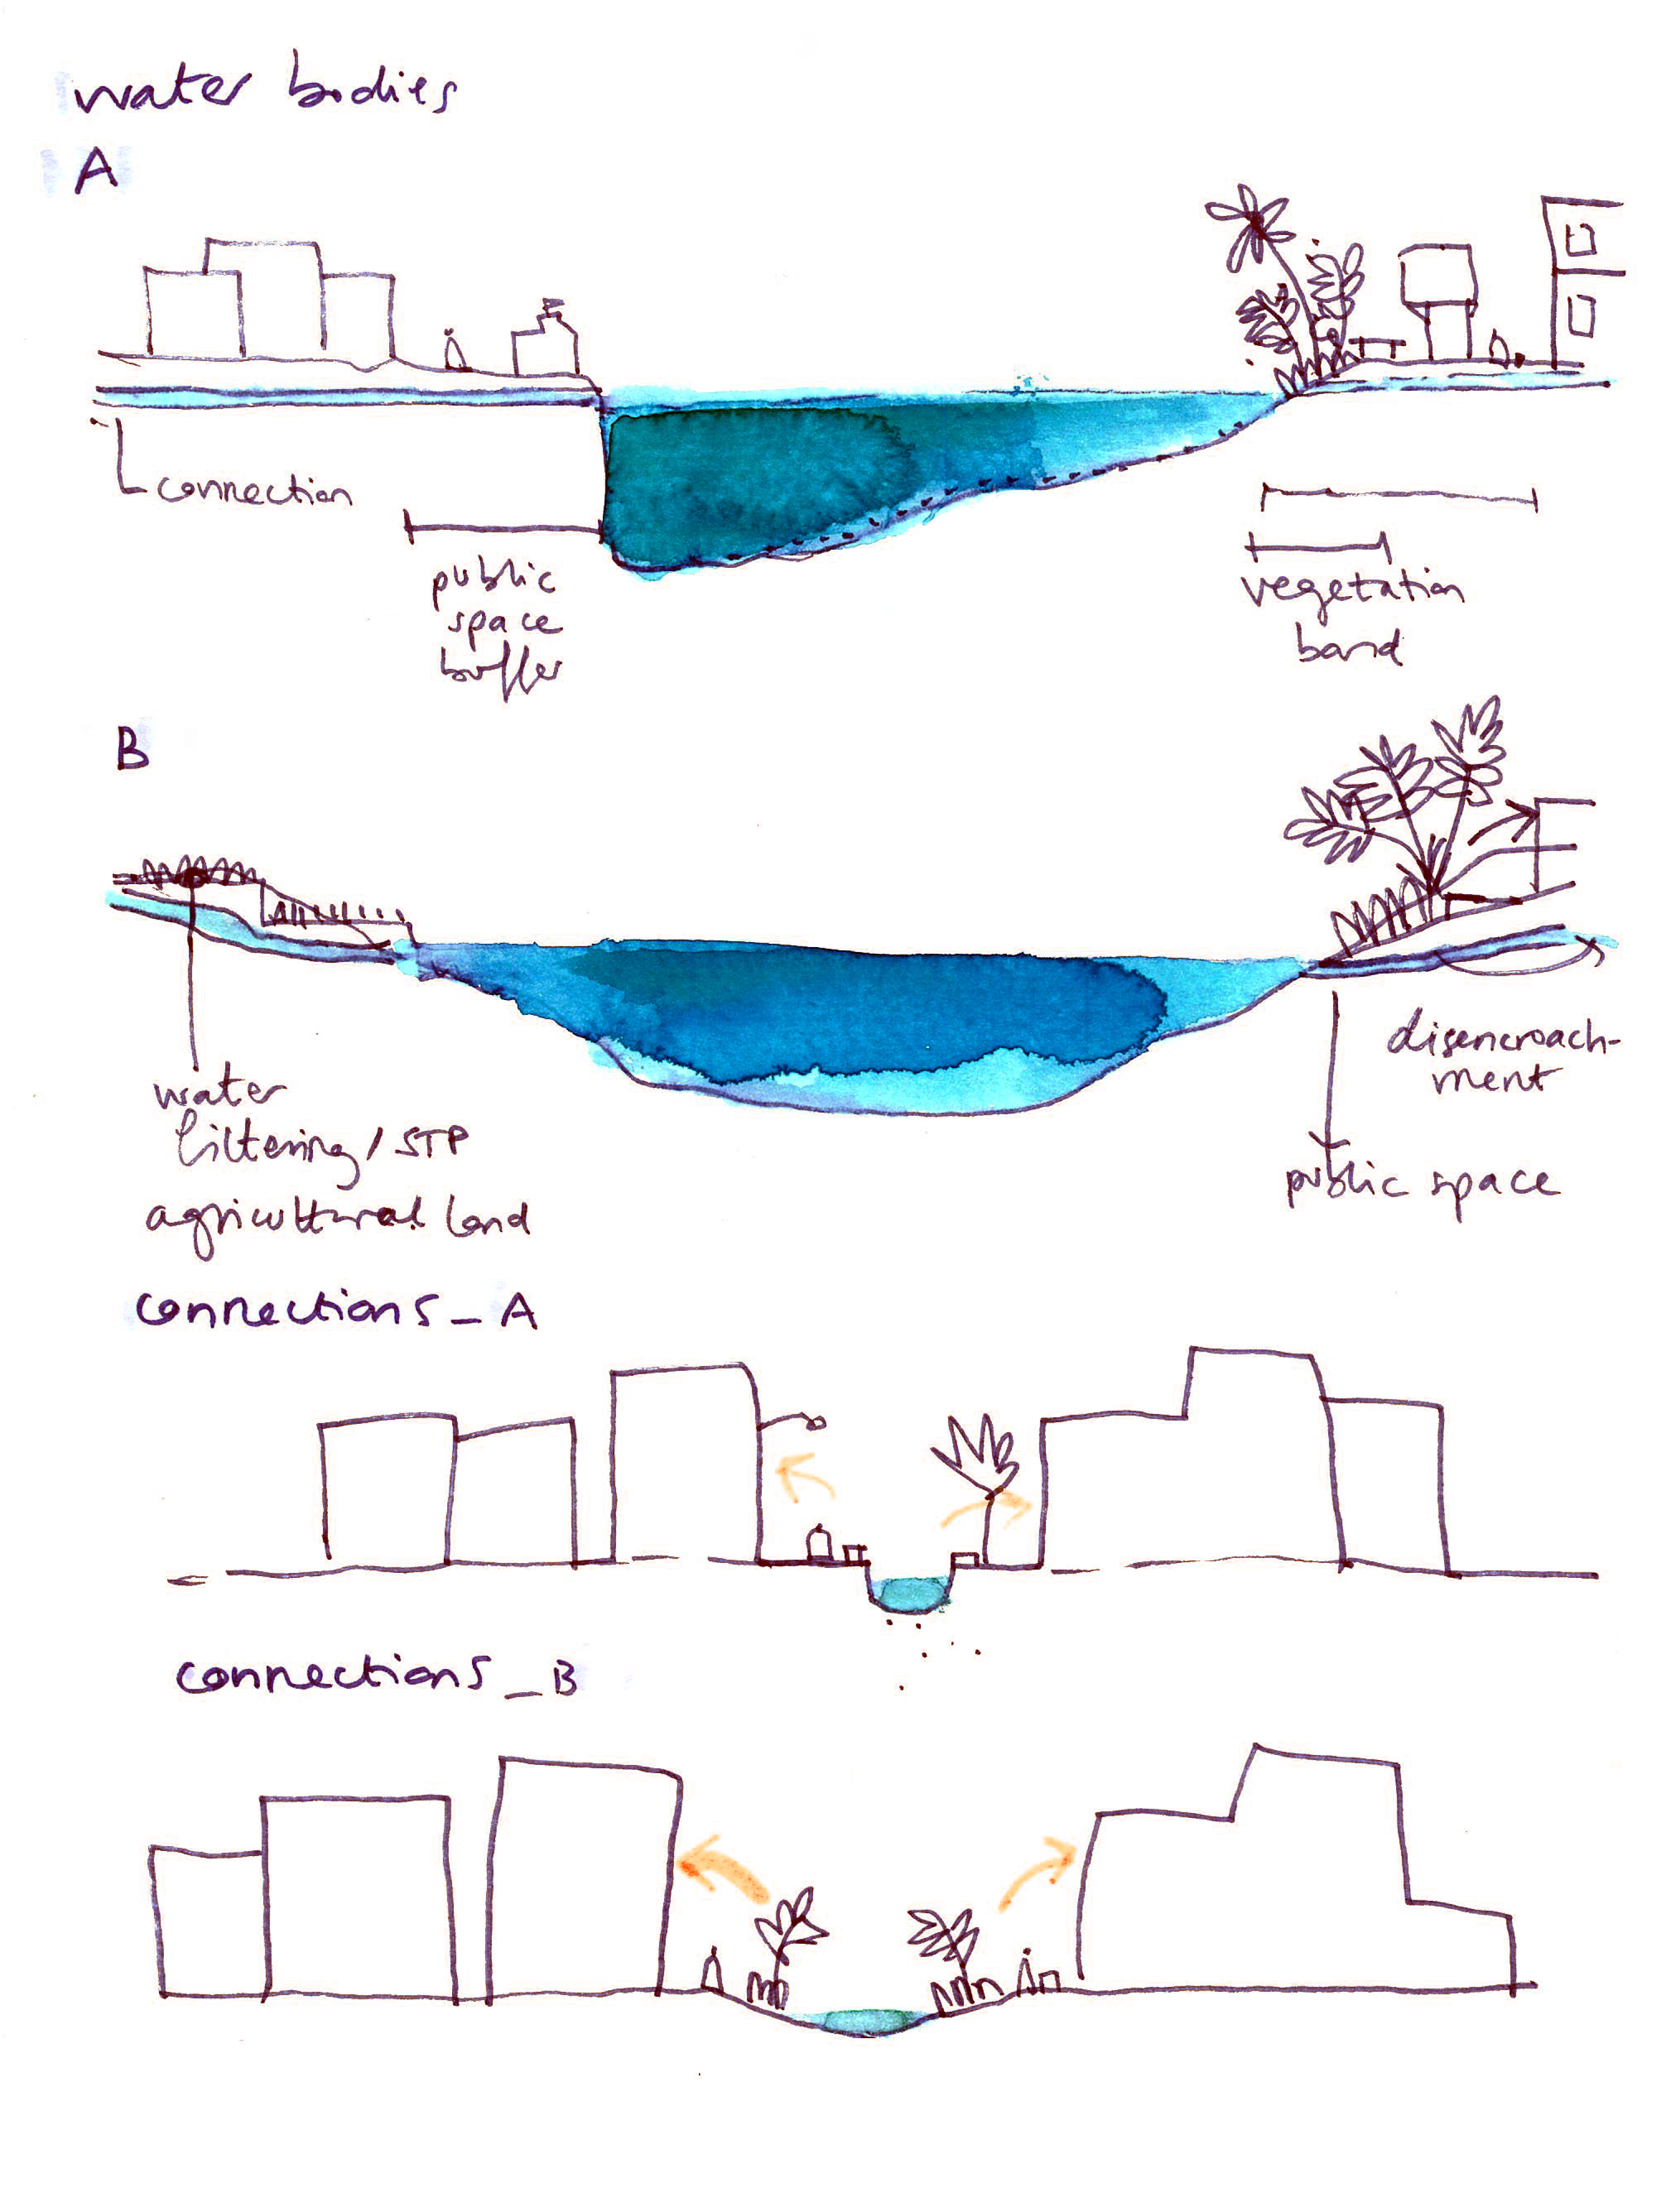 water bodies
A
connection
public
space
buffer
vegetation
band
B
water
filtering / STP
agricultural land
disencroach-
ment
public space
connections_A
connections_B